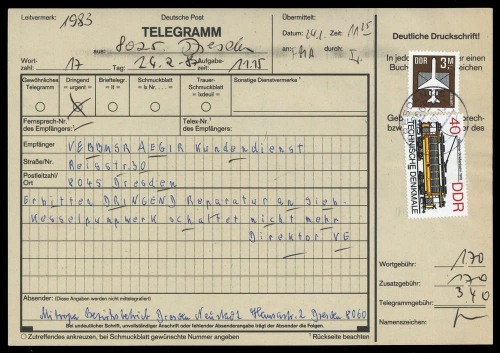 Leitvermerk: 1983
Deutsche Post
TELEGRAMM
aus: 8025 Dresden
Wort-
zahl: 17
24.2.87
Aufgabe-
zeit: 11.15
Übermittelt:
Datum: 24.2. Zeit: 11 25
an: durch:
Deutliche Druckschrift!
In jedes
Buch
zeichen
Gewöhnliches
Telegramm
Dringend
= urgent =
Brieftelegr.
= lt =
Schmuckblatt
= lx Nr. ... =
Trauer-
Schmuckblatt
= lxdeuil =
Sonstige Dienstvermerke
Fernsprech-Nr.
des Empfängers:
Telex-Nr.
des Empfängers:
Empfänger
VEB DMSR AEGIR Kundendienst
Straße/Nr.
Reisstr. 30
Postleitzahl/
Ort
8045 Dresden
Erbitten DRINGEND Reparatur an Sieb-
Kesselpumpwerk schaltet nicht mehr
Direktor VE
Absender: (Diese Angaben werden nicht mittelegrafiert)
Mitropa Bereitsbetrieb Dresden Neustadt Hansastr. 2 Dresden 8060
Bei undeutlicher Schrift, unvollständiger oder fehlender Absenderangabe trägt der Absender die Folgen.
Zutreffendes ankreuzen, bei Schmuckblatt gewünschte Nummer angeben
¹ Rückseite beachten
DDR 3M
40
DDR
TECHNISCHE DENKMALE
Wortgebühr: 1.70
Zusatzgebühr: 1.70
Telegrammgebühr: 3.40
Namenszeichen: